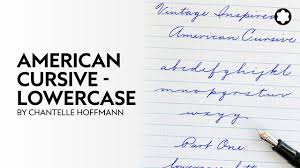 AMERICAN
CURSIVE -
LOWERCASE
BY CHANTELLE HOFFMANN
Vintage Inspired
American Cursive
abcdefghijkl
mnopqrstuv
wxyz
Part One